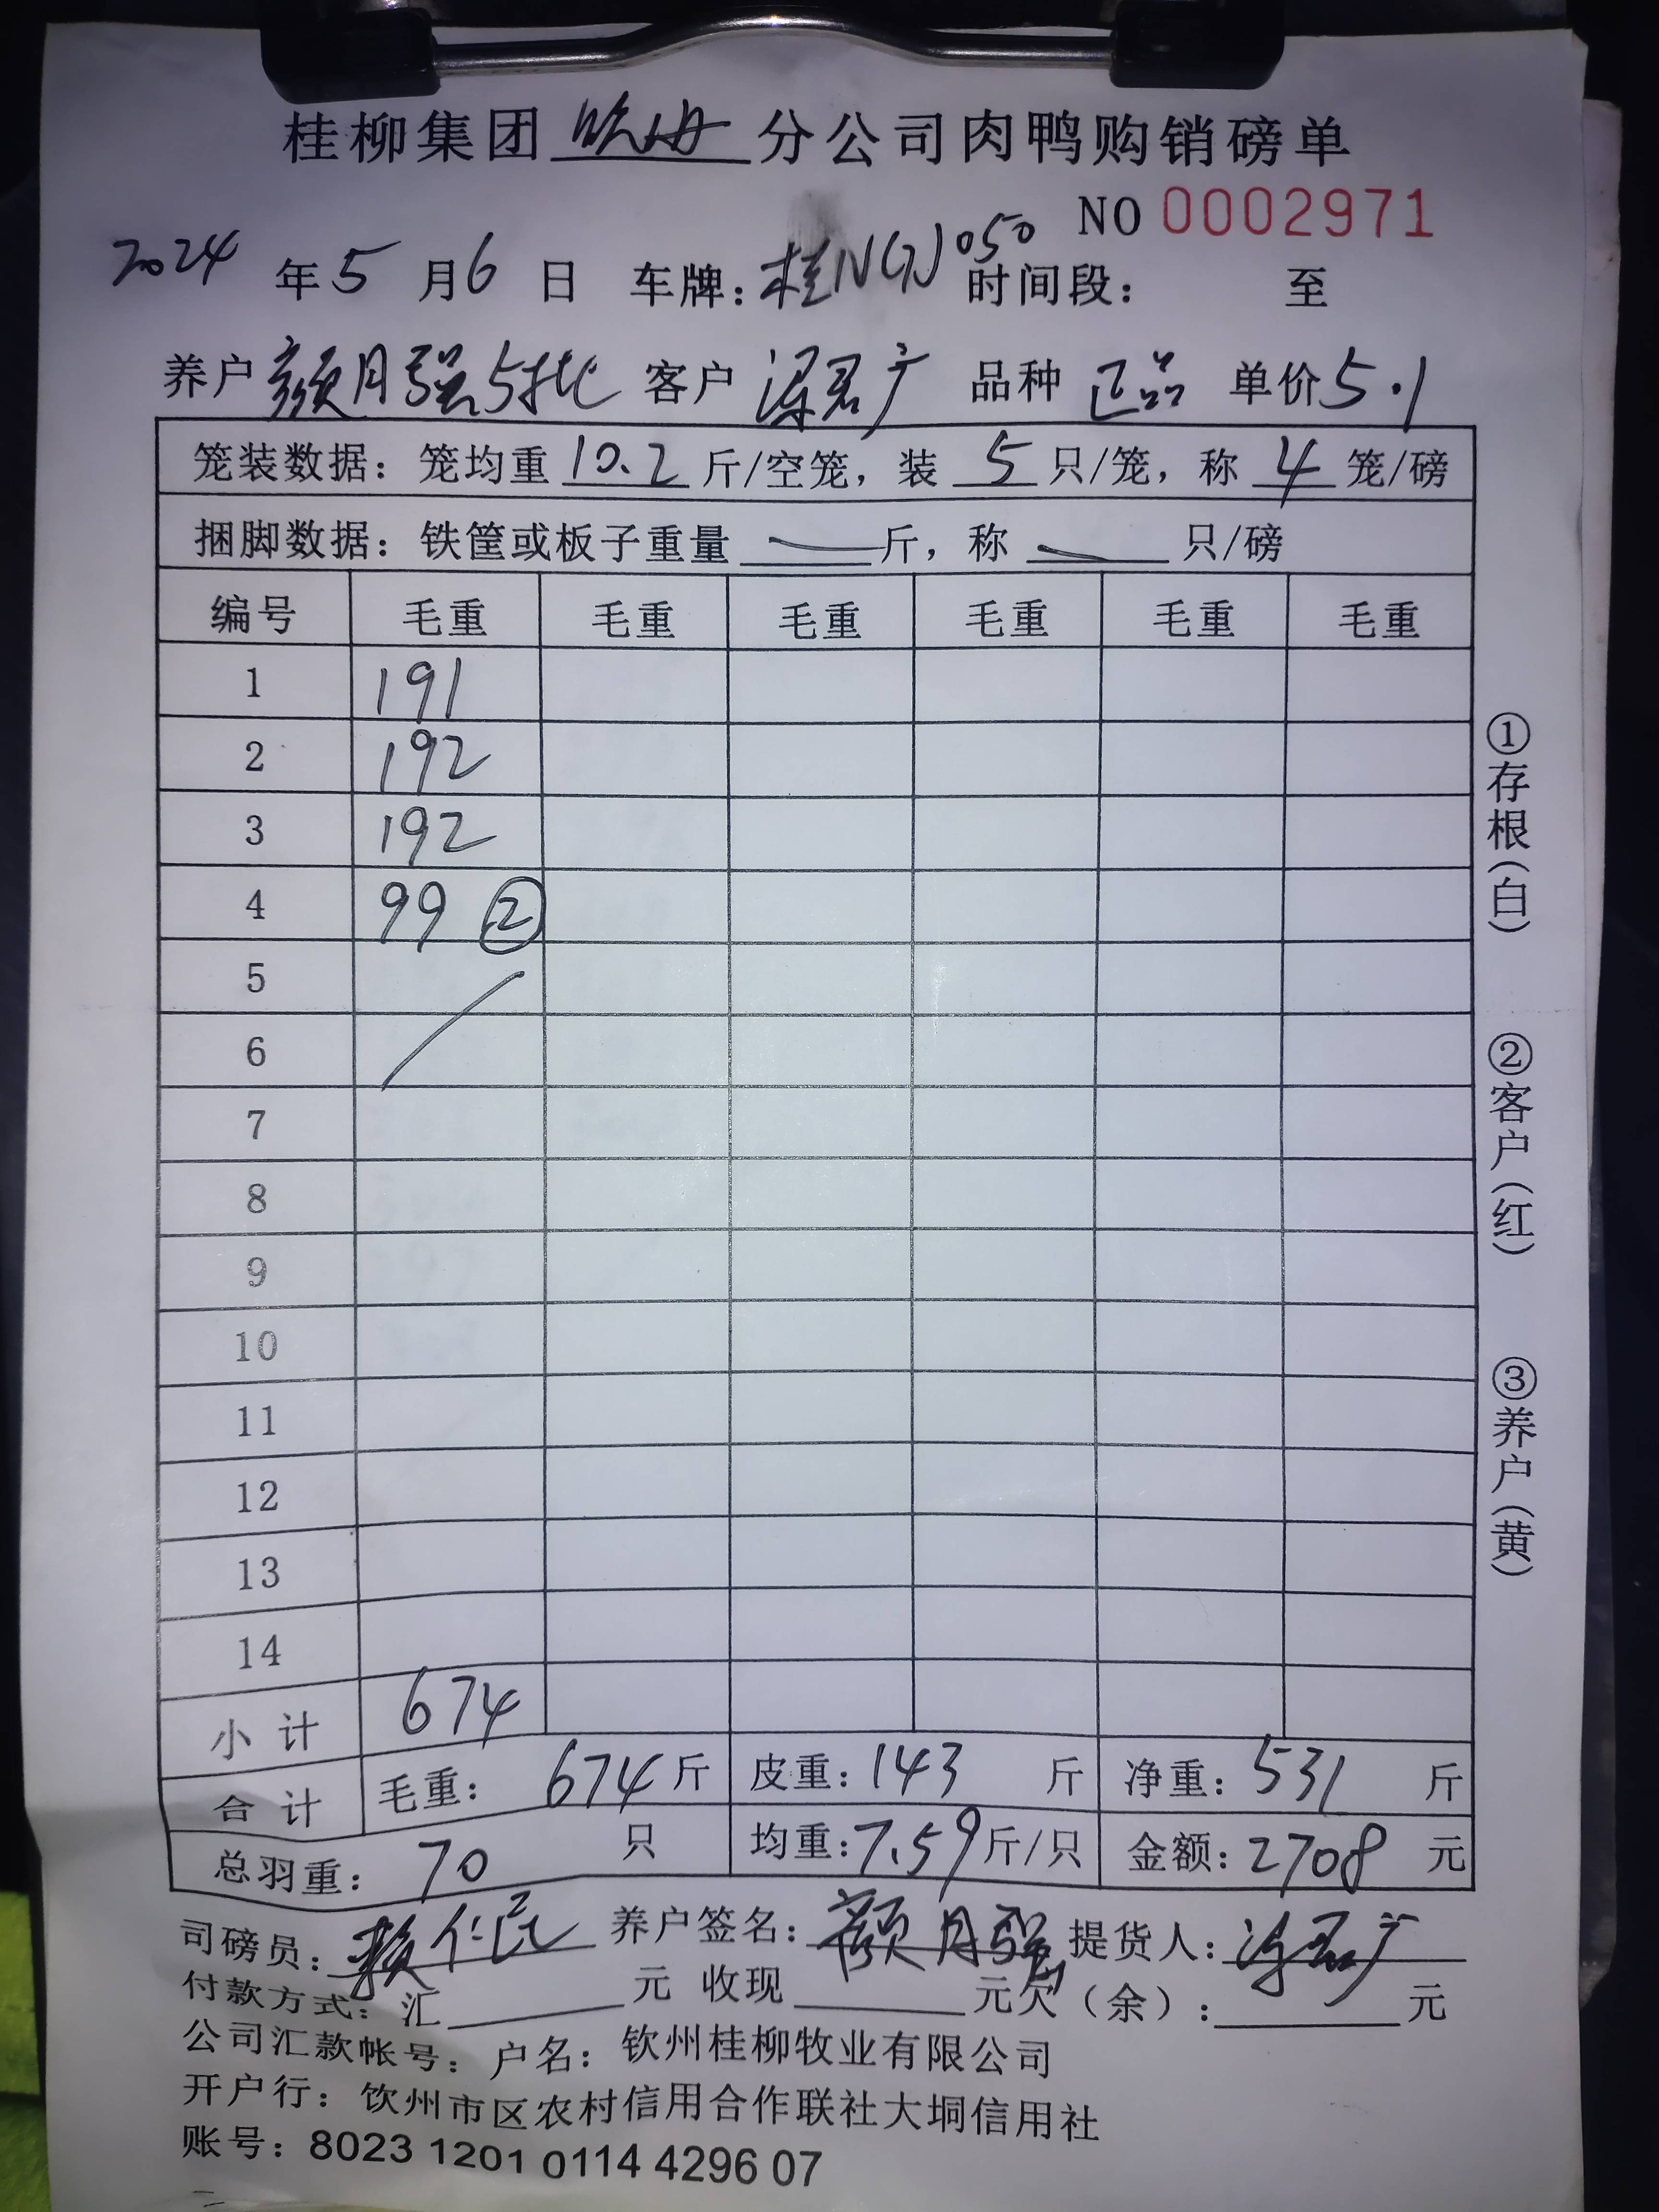 桂柳集团钦海分公司肉鸭购销磅单
NO 0002971
2024年5月6日 车牌：桂N 050 时间段： 至
养户 颜月强5批 客户 梁君广 品种 正品 单价5.1
笼装数据：笼均重10.2斤/空笼，装5只/笼，称4笼/磅
捆脚数据：铁筐或板子重量 — 斤，称 — 只/磅
编号 毛重 毛重 毛重 毛重 毛重 毛重
1 191
2 192
3 192
4 99 ②
5
6
7
8
9
10
11
12
13
14
小计 674
合计 毛重：674斤 皮重：143斤 净重：531斤
总羽重：70只 均重：7.59斤/只 金额：2708元
司磅员：赖仁民 养户签名：颜月强 提货人：梁君广
付款方式：汇 元 收现 元欠（余）： 元
公司汇款帐号：户名：钦州桂柳牧业有限公司
开户行：钦州市区农村信用合作联社大垌信用社
账号：8023 1201 0114 4296 07
①存根（白）
②客户（红）
③养户（黄）